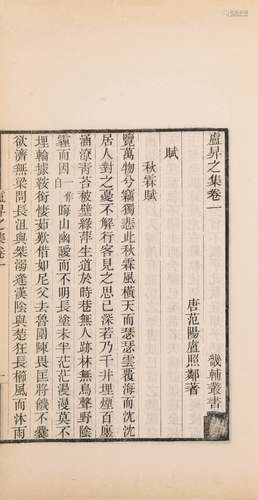 盧昇之集卷一
畿輔叢書
唐范陽盧照鄰著
賦
秋霖賦
覽萬物兮竊獨悲此秋霖風橫天而瑟瑟雲覆海而沈沈
居人對之憂不解行客見之思已深若乃千井埋煙百廛
涵潦青苔被壁綠萍生道於時巷無人跡林無鳥聲野陰
霾而因一作自晦山幽曖而不明長塗未半茫茫漫漫莫不
埋輪據鞍銜悽茹歎借如尼父去魯圍陳畏匡將饑不爨
欲濟無梁問長沮與桀溺逢漢陰與楚狂長櫛風而沐雨
盧昇之集卷一